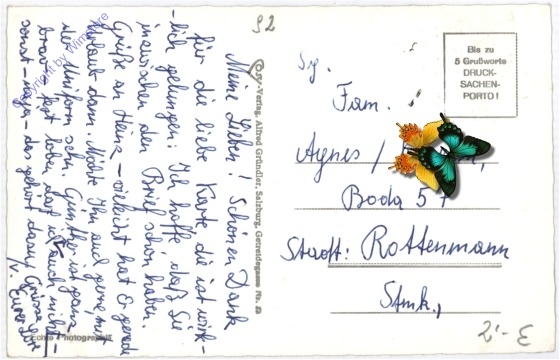 92
Meine Lieben! Schönen Dank
für die liebe Karte die ist wirk-
lich gelungen. Ich hoffe daß Sie
inzwischen den Brief schon haben.
Grüße an Heinz – vielleicht hat Er gerade
Urlaub dann. Möchte Ihn auch gerne mit
der Uniform sehn. Günther ist ganz
brav – fest loben darf ich auch nicht –
sonst – naja – das gehört dazu. Grüsse
v. Eurer
Echte Photographie
Verlag, Alfred Gründler, Salzburg, Getreidegasse Nr.
Bis zu
5 Grußworte
DRUCK-
SACHEN-
PORTO!
Fam.
Agnes /
Boda 57
Stadt: Rottenmann
Stmk.,
2'- E